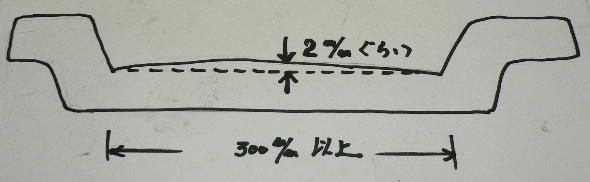 2 m/m ぐらい
300 m/m 以上